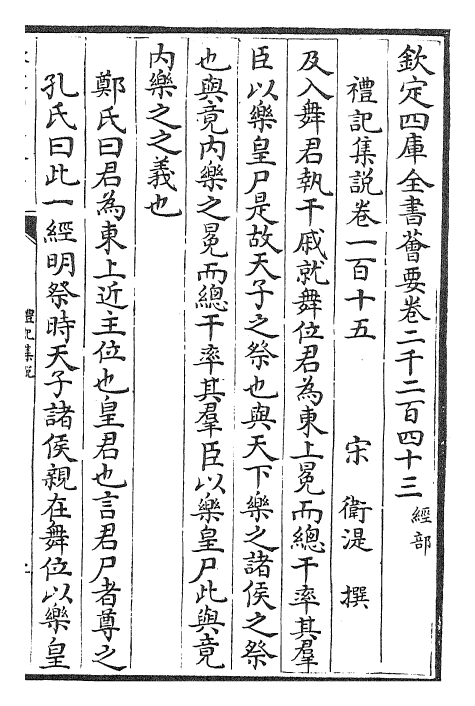 欽定四庫全書薈要卷二千二百四十三 經部
禮記集說卷一百十五 宋 衛湜 撰
及入舞君執干戚就舞位君為東上冕而總干率其羣
臣以樂皇尸是故天子之祭也與天下樂之諸侯之祭
也與竟內樂之冕而總干率其羣臣以樂皇尸此與竟
內樂之之義也
鄭氏曰君為東上近主位也皇君也言君尸者尊之
孔氏曰此一經明祭時天子諸侯親在舞位以樂皇
禮記集說